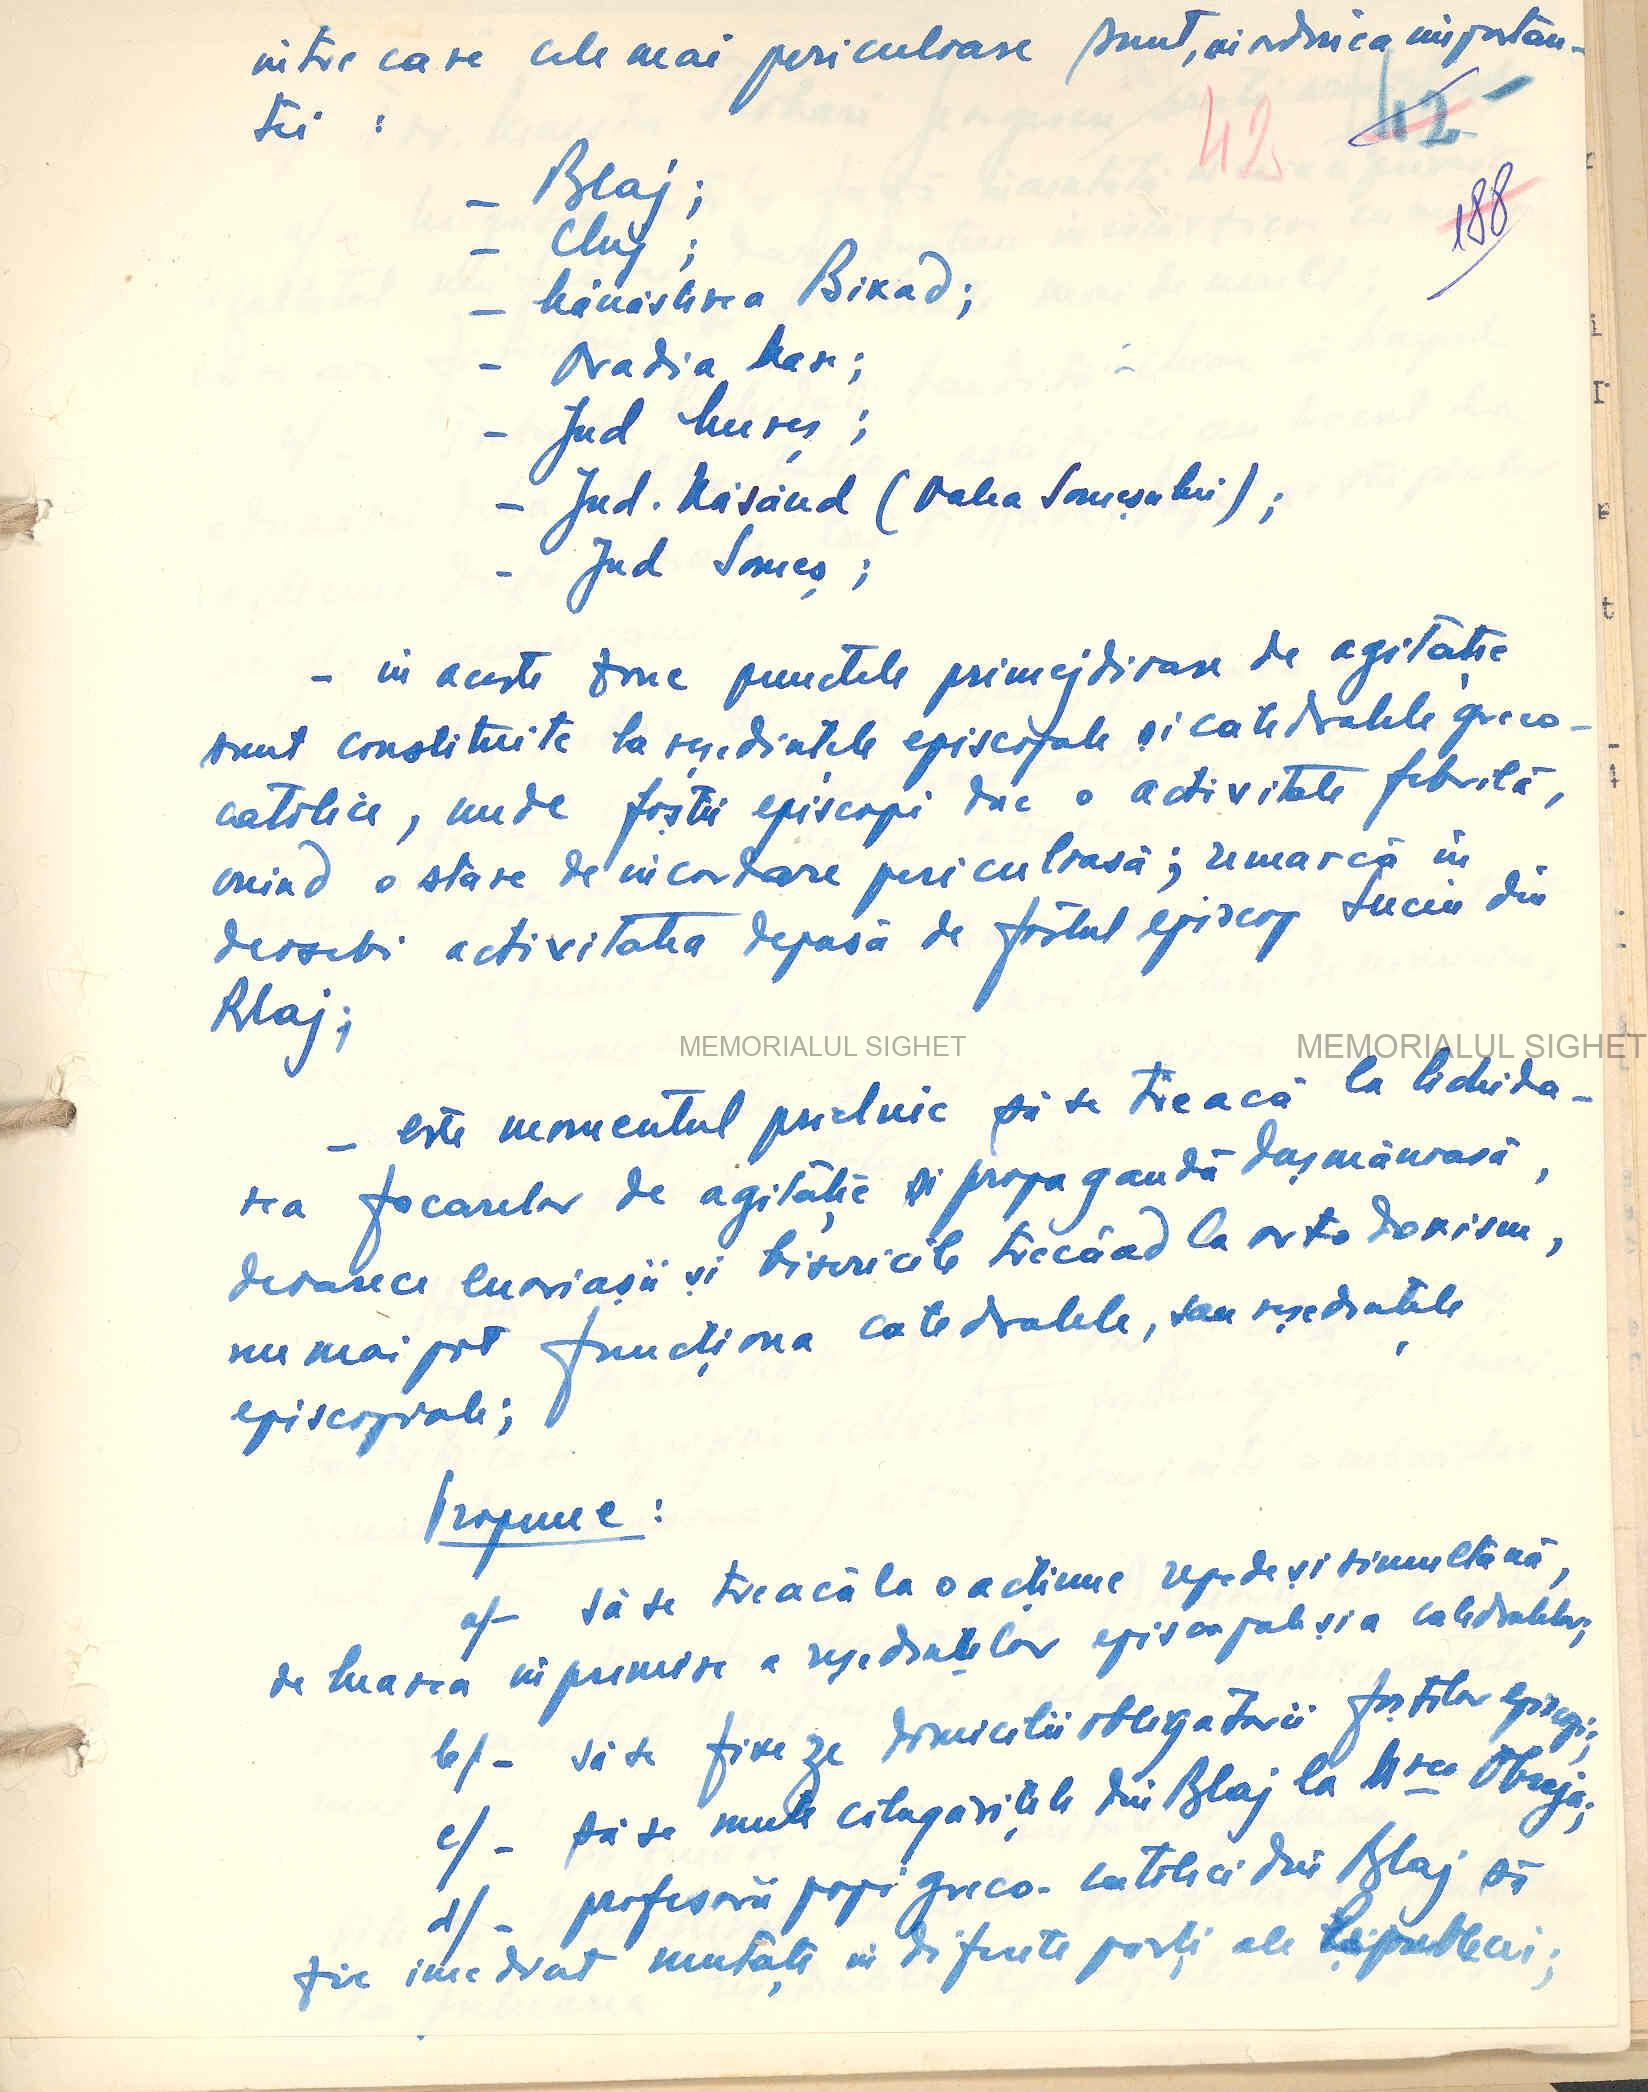 intre care cele mai periculoase sunt, in ordinea importan-
tei :
42
42
188
- Blaj;
- Cluj ;
- Mânăstirea Bixad;
- Oradia Mare;
- Jud Mureș ;
- Jud. Năsăud (Valea Someșului) ;
- Jud Someș ;
- in aceste zone punctele primejdioase de agitație
sunt constituite la reședintele episcopale și catedralele greco-
catolice, unde foștii episcopi duc o activitate febrilă,
o stare de incordare periculoasă ; remarcă in
deosebi activitatea depusă de fostul episcop Suciu din
Blaj;
MEMORIALUL SIGHET
MEMORIALUL SIGHET
- este momentul prielnic să se treacă la lichida-
rea focarelor de agitație și propagandă dușmănoasă,
deoarece enoriașii și bisericile trecând la ortodoxism,
nu mai pot funcționa catedralele, sau reședințele
episcopale;
Propune :
a/- să se treacă la o acțiune repede și simultană,
de luarea in primire a reședințelor episcopale și a catedralelor;
b/- să se fixeze domicilii obligatorii foștilor episcopi;
c/- să se mute călugărițele din Blaj la M-rea Obreja;
d/- profesorii popi greco-catolici din Blaj să
fie imediat mutați in diferite părți ale Republicii;